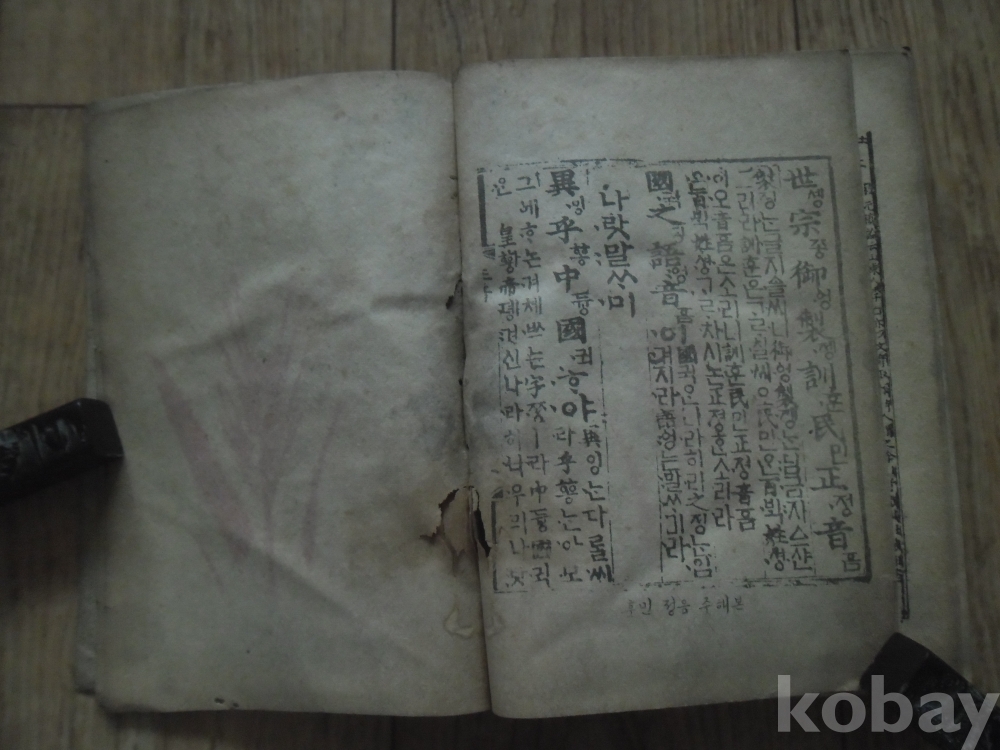 世솅宗종御엉製졩訓훈民민正졍音흠
製졩는글지ᅀᅳᆯ씨니御엉製졩는님금지ᅀᅳ샨
그리라訓훈은ᄀᆞᄅᆞ칠씨오民민ᄋᆞᆫ百ᄇᆡᆨ姓셩
이오音흠은소리니訓훈民민正졍音흠
은百ᄇᆡᆨ姓셩ᄀᆞᄅᆞ치시논正졍ᄒᆞᆫ소리라
國귁之징語엉音흠이國귁ᄋᆞᆫ나라히라之징는입
겨지라語엉는말ᄊᆞ미라
나랏말ᄊᆞ미
異잉乎ᅘᅩᆼ中듕國귁ᄒᆞ야異잉는다ᄅᆞᆯ씨
라乎ᅘᅩᆼ는아모
그에ᄒᆞ논겨체쓰는字ᄍᆞᆼㅣ라中듕國귁
은皇황帝뎽겨신나라히니우리나랏
훈민 정음 주해본
kobay